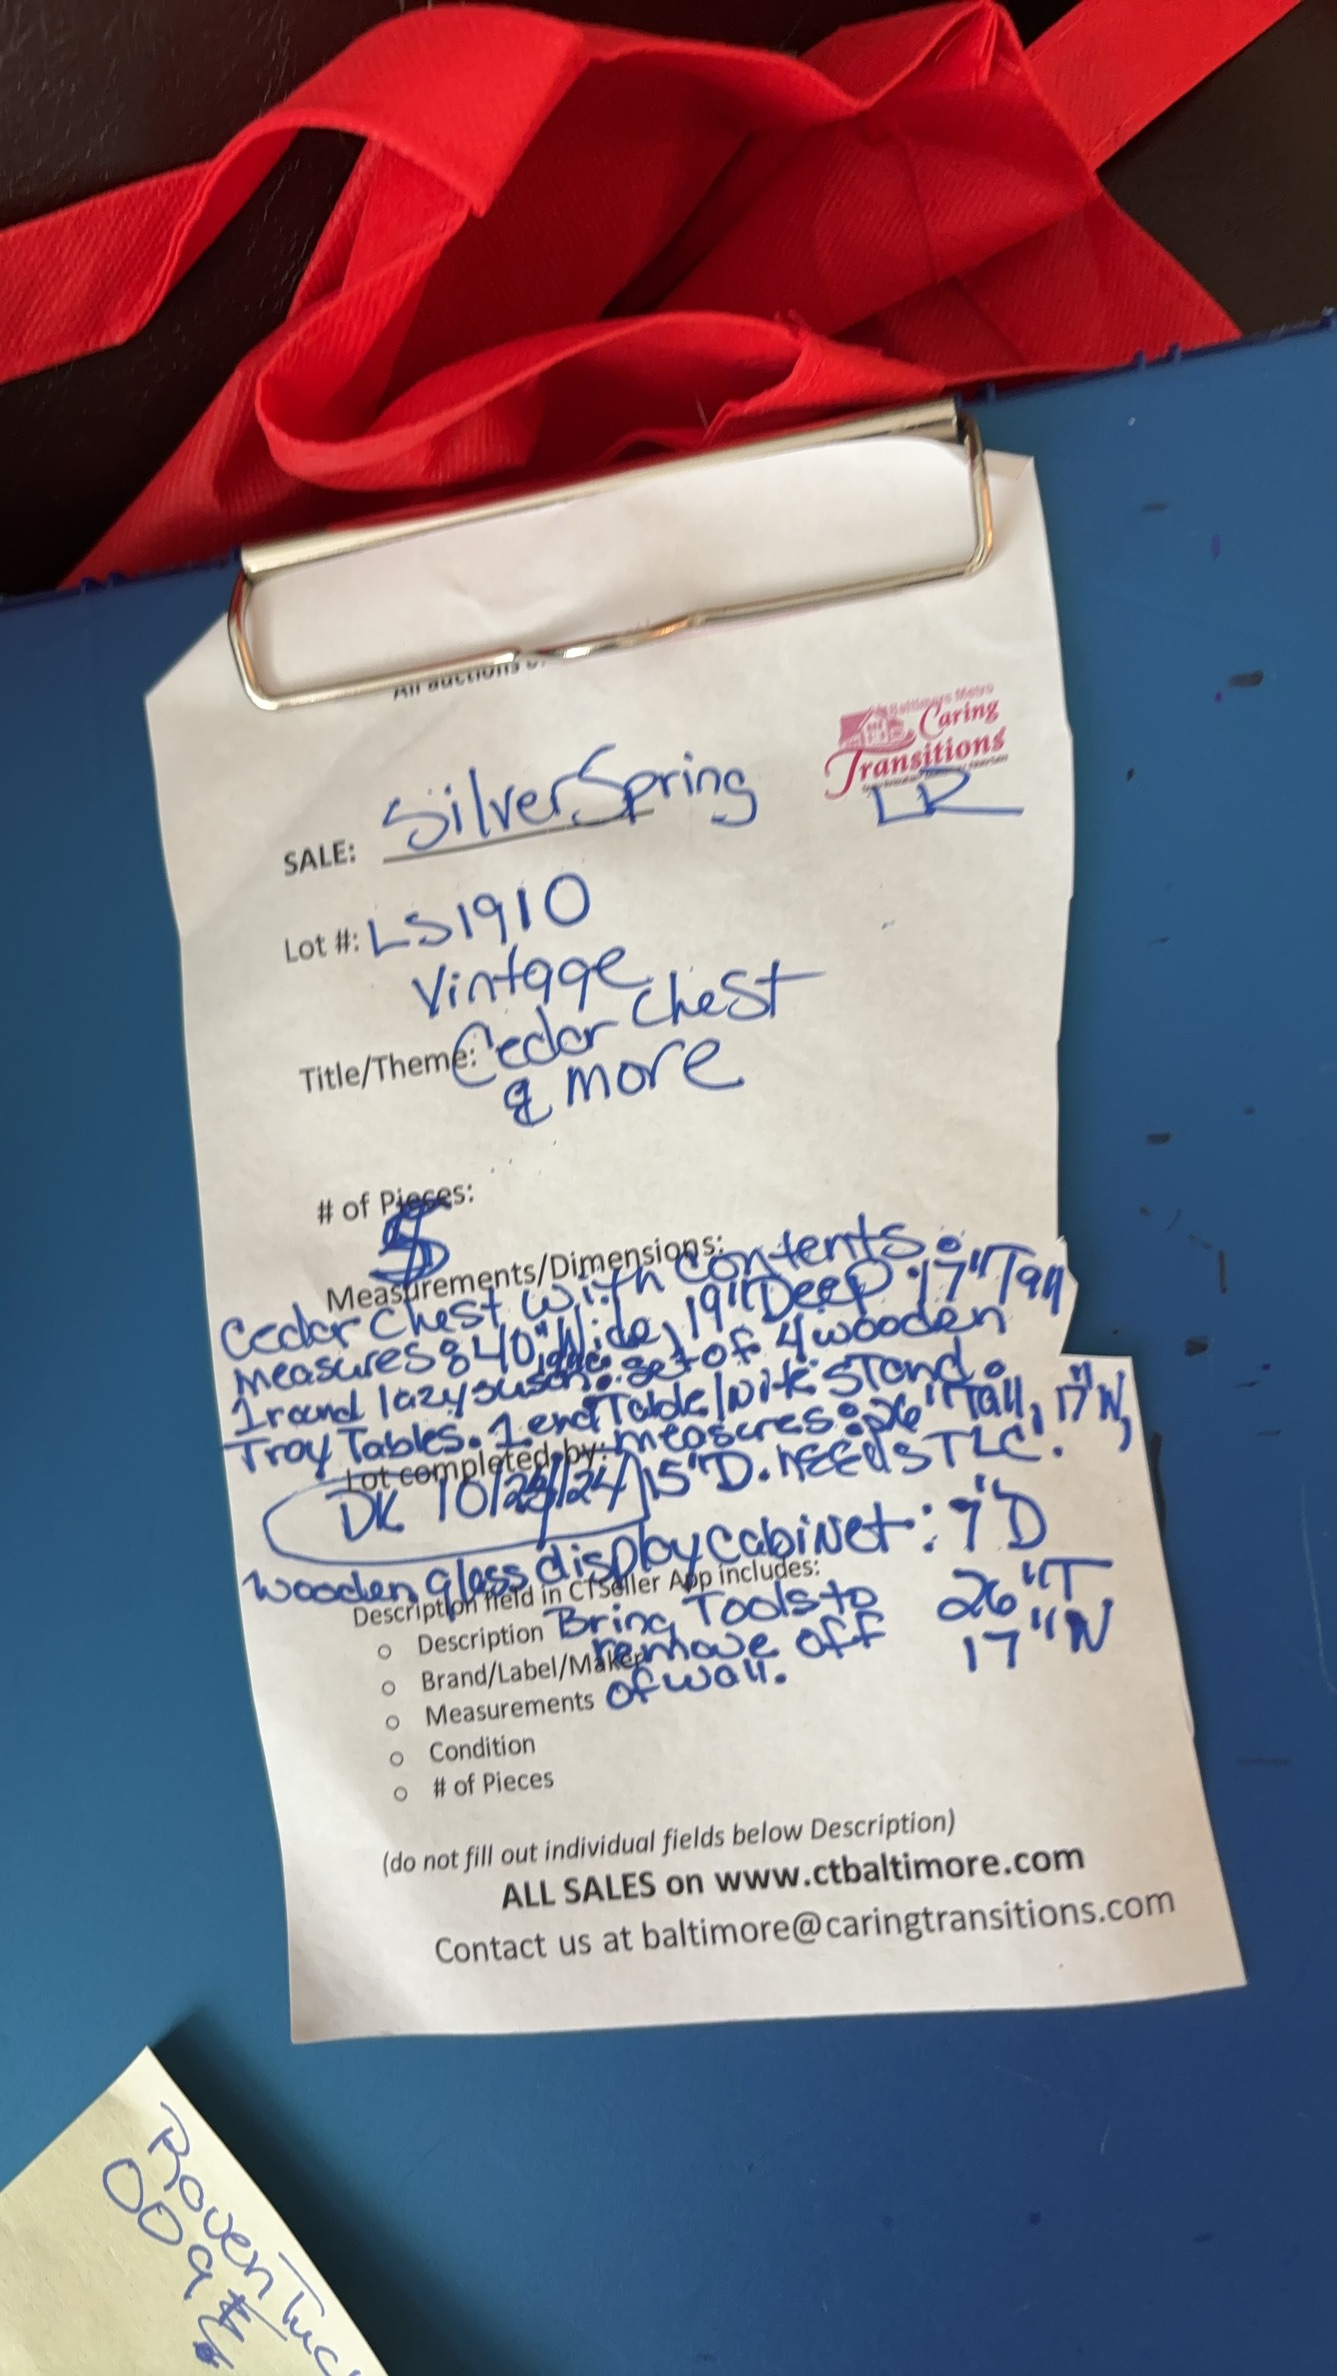 All auctions
Baltimore Metro
Caring
Transitions
SALE: Silver Spring
LR
Lot #: LS1910
Vintage
Title/Theme: Cedar Chest
& more
# of Pieces:
Measurements/Dimensions:
Cedar Chest with contents.
measures: 40" Wide, 19" Deep, 17" Tall
1 round lazy susan. set of 4 wooden
Tray Tables. 1 end Table/Nite Stand.
measures: 26" Tall, 17" W,
Lot completed by: 15" D. NEEdS TLC.
DK 10/25/24
wooden glass display cabinet: 9" D
Description field in CTSeller App includes:
26" T
○ Description Bring Tools to
17" W
○ Brand/Label/Maker remove off
○ Measurements of wall.
○ Condition
○ # of Pieces
(do not fill out individual fields below Description)
ALL SALES on www.ctbaltimore.com
Contact us at baltimore@caringtransitions.com
009